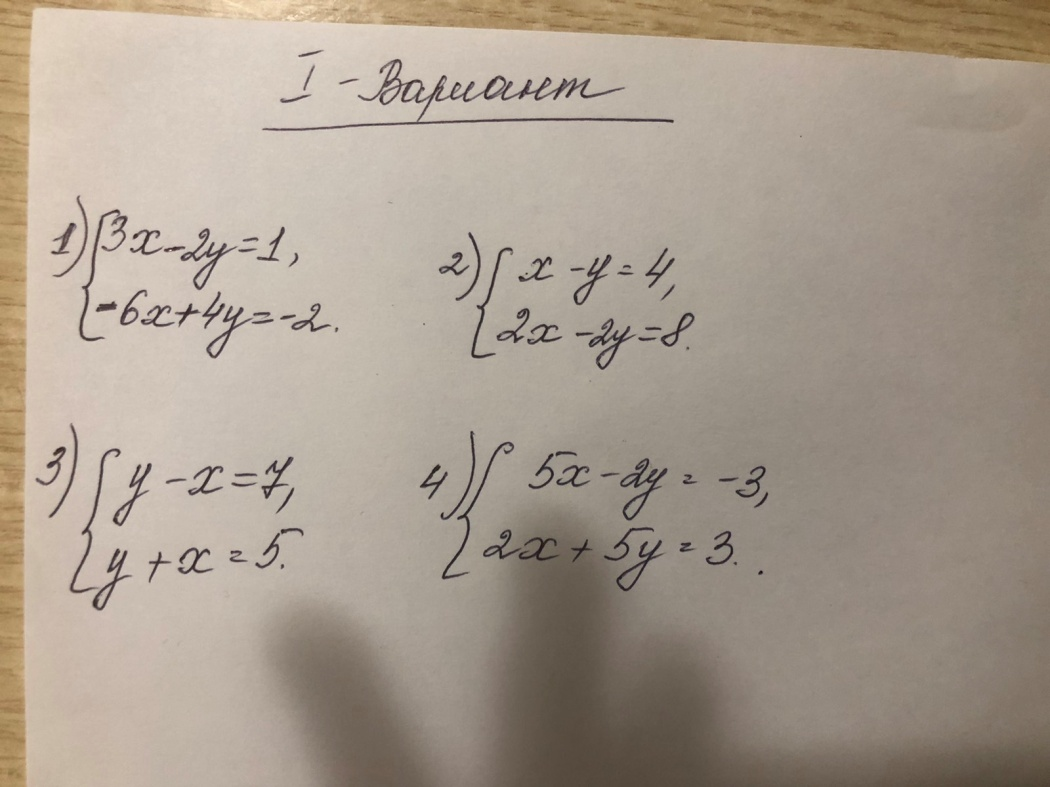 I - Вариант
1) { 3x-2y=1,
-6x+4y=-2.
2) { x-y=4,
2x-2y=8.
3) { y-x=7,
y+x=5.
4) { 5x-2y=-3,
2x+5y=3..